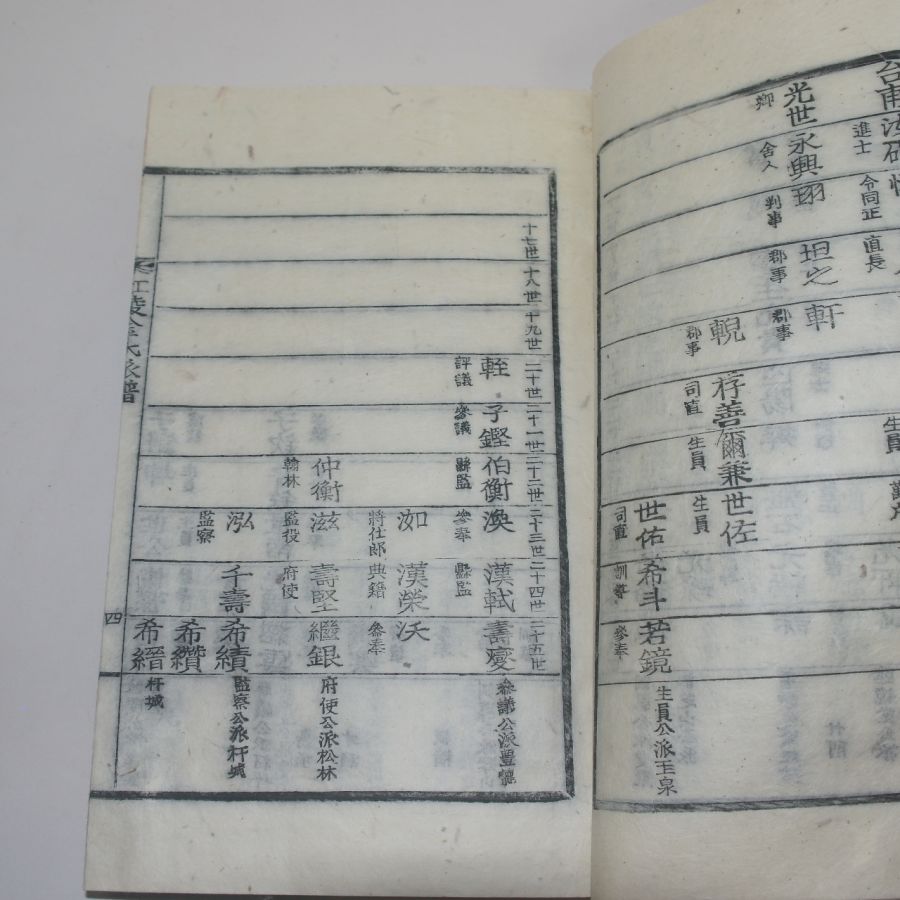 台甫
進士
令同正
直長
生員
光世
卿
永興
舍人
珝
判事
坦之
郡事
軒
郡事
輗
郡事
荐善
司直
爾兼
生員
世佐
生員
世佑
司直
希斗
訓導
若鏡
參奉
生員公派玉泉
十七世
十八世
十九世
二十世
二十一世
二十二世
二十三世
二十四世
二十五世
輊
評議
子鏗
參議
伯衡
縣監
渙
參奉
漢軾
縣監
壽燮
參議公派豊德
洳
將仕郎
漢榮
典籍
沃
參奉
仲衡
翰林
滋
監役
壽堅
府使
繼銀
府使公派松林
泓
監察
千壽
希績
監察公派杆城
希纘
希縉
杆城
江陵金氏派譜
四